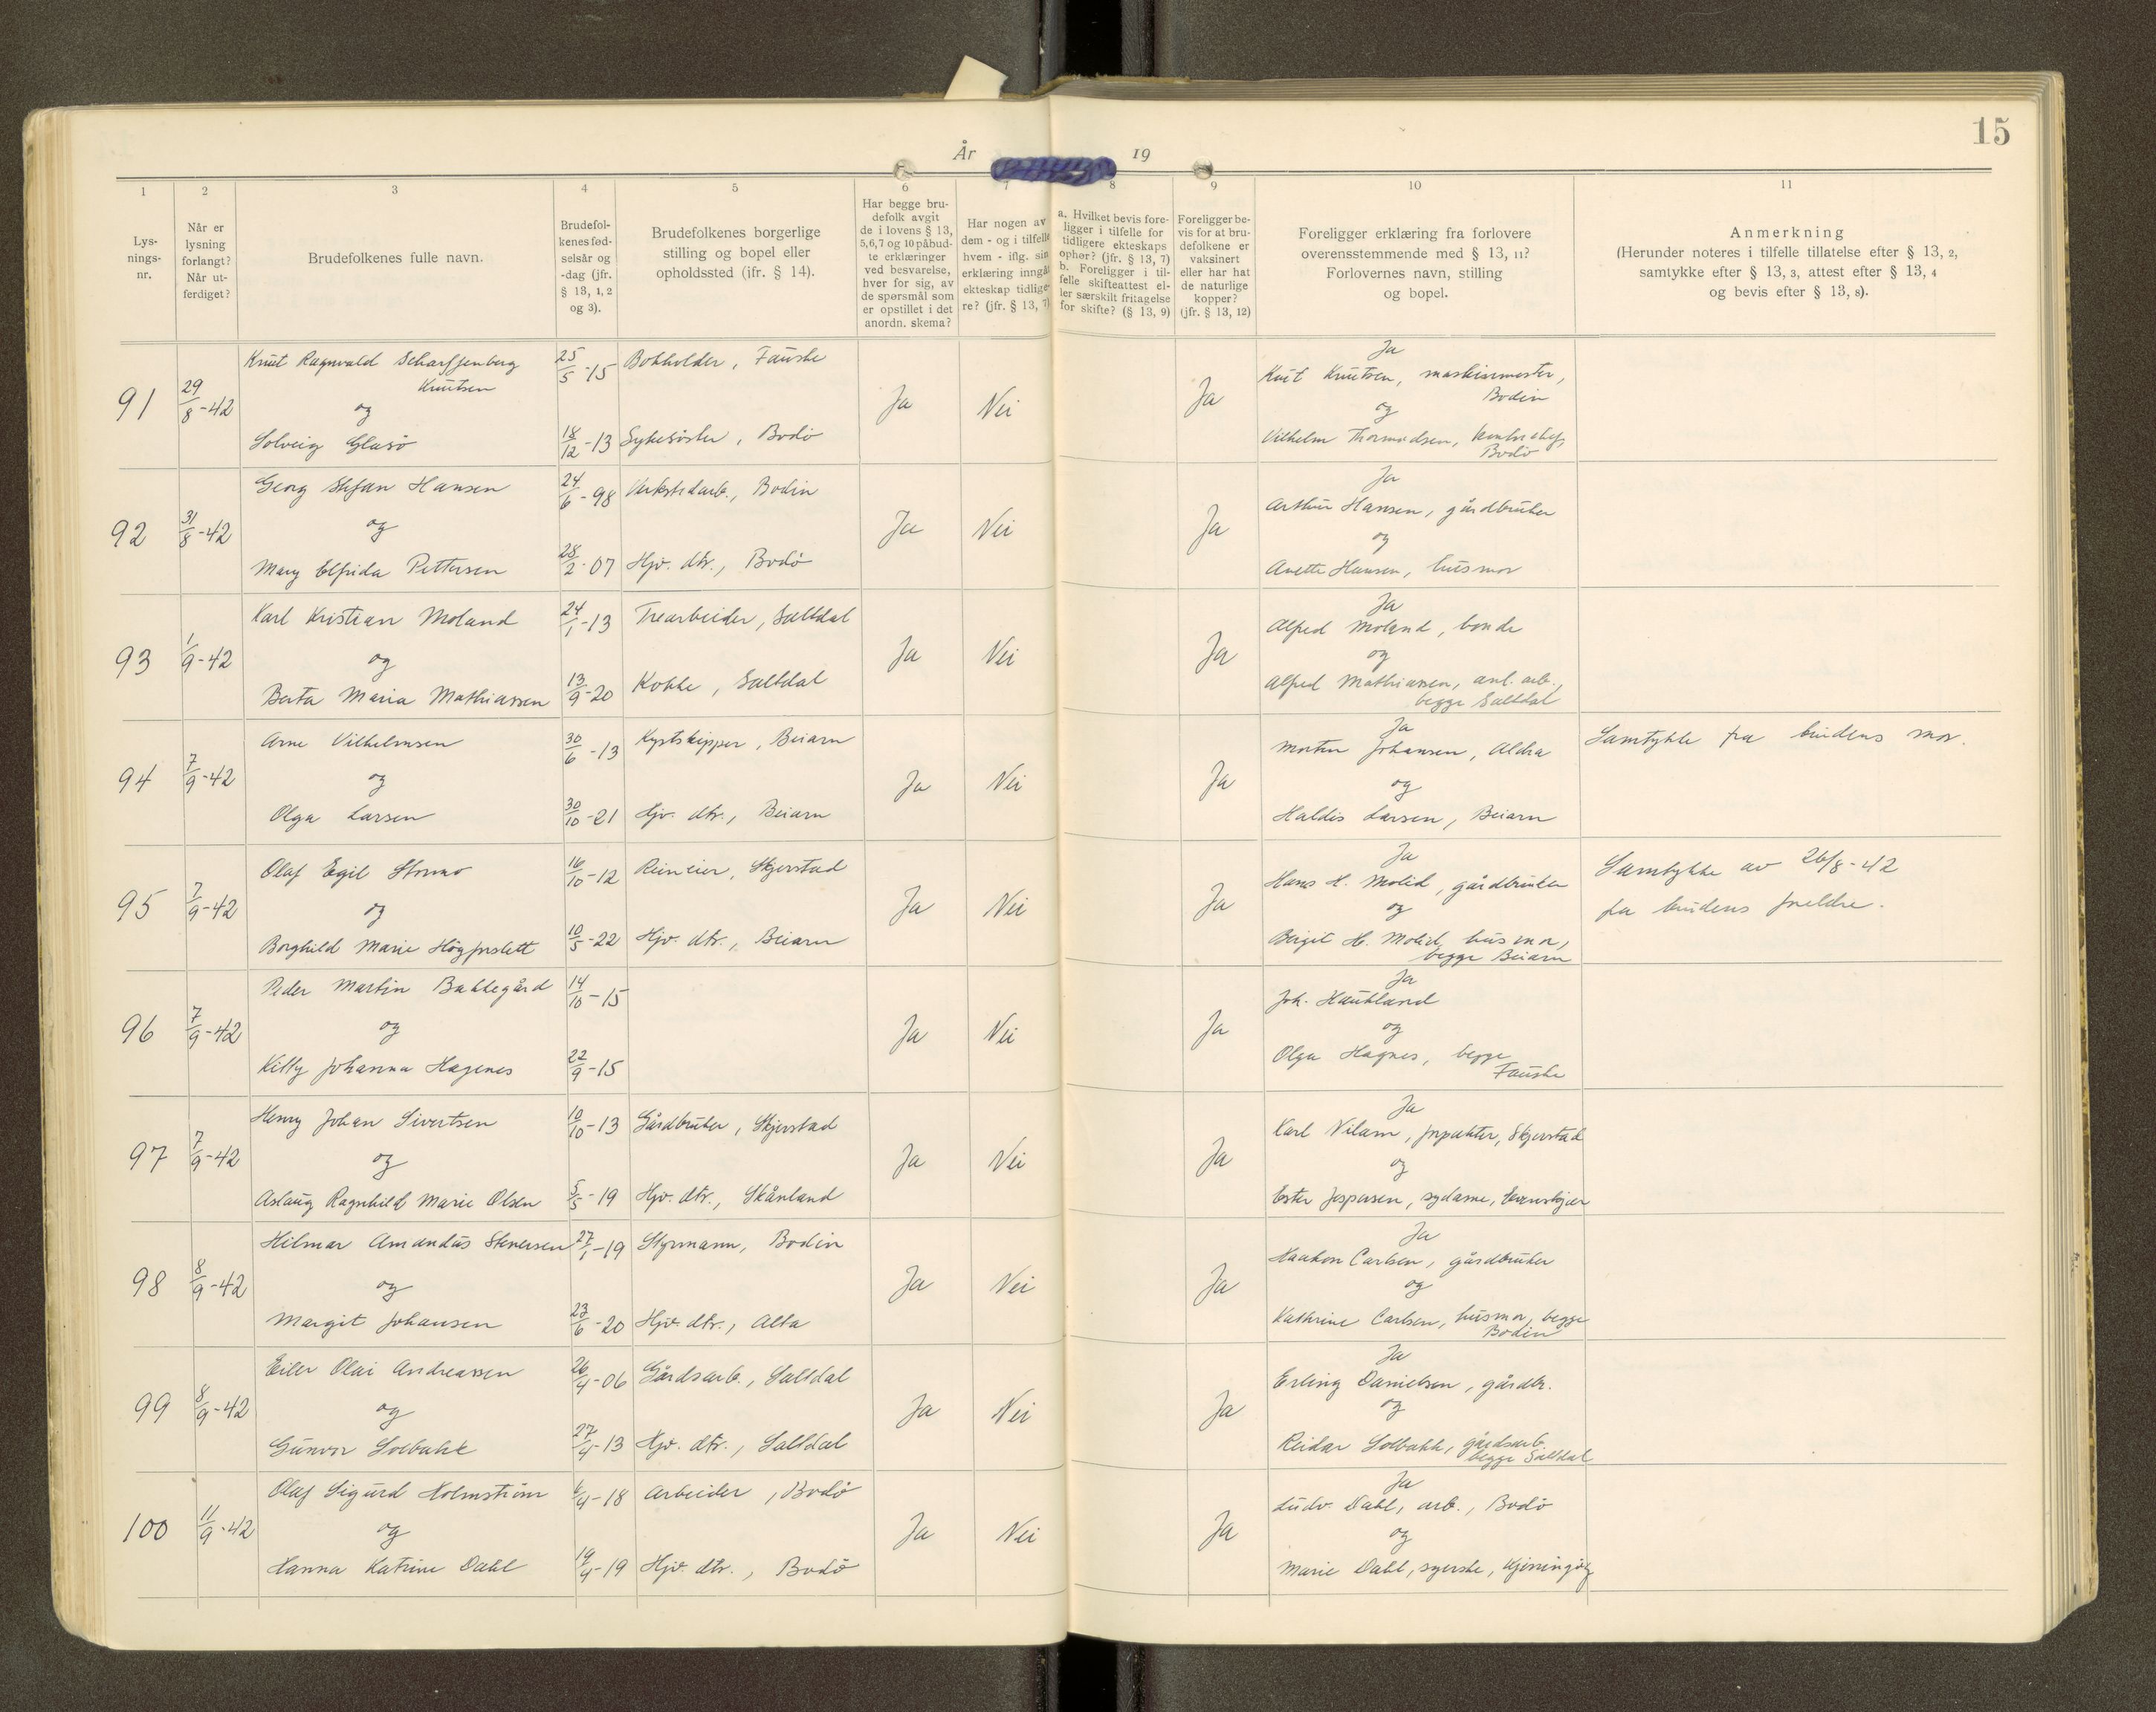 15
År 19
1 2 3 4 5 6 7 8 9 10 11
Lys-
nings-
nr.
Når er
lysning
forlangt?
Når ut-
ferdiget?
Brudefolkenes fulle navn.
Brudefol-
kenes fød-
selsår og
-dag (jfr.
§ 13, 1, 2
og 3).
Brudefolkenes borgerlige
stilling og bopel eller
opholdssted (ifr. § 14).
Har begge bru-
defolk avgit
de i lovens § 13,
5,6,7 og 10 påbud-
te erklæringer
ved besvarelse,
hver for sig, av
de spørsmål som
er opstillet i det
anordn. skema?
Har nogen av
dem - og i tilfelle
hvem - iflg. sin
erklæring inngåt
ekteskap tidlige-
re? (jfr. § 13, 7)
a. Hvilket bevis fore-
ligger i tilfelle for
tidligere ekteskaps
ophør? (jfr. § 13, 7)
b. Foreligger i til-
felle skifteattest el-
ler særskilt fritagelse
for skifte? (§ 13, 9)
Foreligger be-
vis for at bru-
defolkene er
vaksinert
eller har hat
de naturlige
kopper?
(jfr. § 13, 12)
Foreligger erklæring fra forlovere
overensstemmende med § 13, 11?
Forlovernes navn, stilling
og bopel.
Anmerkning
(Herunder noteres i tilfelle tillatelse efter § 13, 2,
samtykke efter § 13, 3, attest efter § 13, 4
og bevis efter § 13, 8).
91 29/8-42 Knut Ragnvald Scharffenberg
Knutsen 25/5-15 Bokholder, Fauske
og
Solveig Glasö 18/12-13 Sykesöster, Bodö
Ja Nei Ja
Ja
Knut Knutsen, maskinmester,
Bodin
og
Vilhelm Thormodsen,
Bodö
92 31/8-42 Georg Stefan Hansen 24/6-98 Verkstedarb., Bodin
og
Mary Elfrida Pettersen 28/2-07 Hjv. dtr., Bodö
Ja Nei Ja
Ja
Arthur Hansen, gårdbruker
og
Anette Hansen, husmor
93 1/9-42 Karl Kristian Moland 24/1-13 Trearbeider, Saltdal
og
Berta Maria Mathiassen 13/9-20 Kokke, Saltdal
Ja Nei Ja
Ja
Alfred Moland, bonde
og
Alfred Mathiassen, anl. arb.,
begge Saltdal
94 7/9-42 Arne Vilhelmsen 30/6-13 Kystskipper, Beiarn
og
Olga Larsen 30/10-21 Hjv. dtr., Beiarn
Ja Nei Ja
Ja
Morten Johansen, Aldra
og
Haldis Larsen, Beiarn
Samtykke fra brudens mor.
95 7/9-42 Olaf Egil Stormo 16/10-12 Reineier, Skjerstad
og
Borghild Marie Högforslett 10/5-22 Hjv. dtr., Beiarn
Ja Nei Ja
Ja
Hans H. Molid, gårdbruker
og
Birgit H. Molid, husmor,
begge Beiarn
Samtykke av 26/8-42
fra brudens foreldre.
96 7/9-42 Peder Martin Bakkegård 14/10-15
og
Kitty Johanna Hagenes 22/9-15
Ja Nei Ja
Ja
Joh. Haukland
og
Olga Hagnes, begge
Fauske
97 7/9-42 Henry Johan Sivertsen 10/10-13 Gårdbruker, Skjerstad
og
Aslaug Ragnhild Marie Olsen 5/5-19 Hjv. dtr., Skånland
Ja Nei Ja
Ja
Karl Nilsen, forpakter, Skjerstad
og
Ester Jespersen, sydame, Evenskjær
98 8/9-42 Hilmar Amandus Stenersen 27/1-19 Styrmann, Bodin
og
Margit Johansen 23/6-20 Hjv. dtr., Alta
Ja Nei Ja
Ja
Haakon Carlsen, gårdbruker
og
Kathrine Carlsen, husmor, begge
Bodin
99 8/9-42 Eiler Olai Andreassen 26/4-06 Gårdsarb., Saltdal
og
Gunvor Solbakk 27/4-13 Hjv. dtr., Saltdal
Ja Nei Ja
Ja
Erling Danielsen, gårdbr.
og
Reidar Solbakk, gårdsarb.
begge Saltdal
100 11/9-42 Olaf Sigurd Holmström 6/4-18 Arbeider, Bodö
og
Hanna Katrine Dahl 19/4-19 Hjv. dtr., Bodö
Ja Nei Ja
Ja
Ludv. Dahl, arb., Bodö
og
Marie Dahl, syerske, Kjerringöy